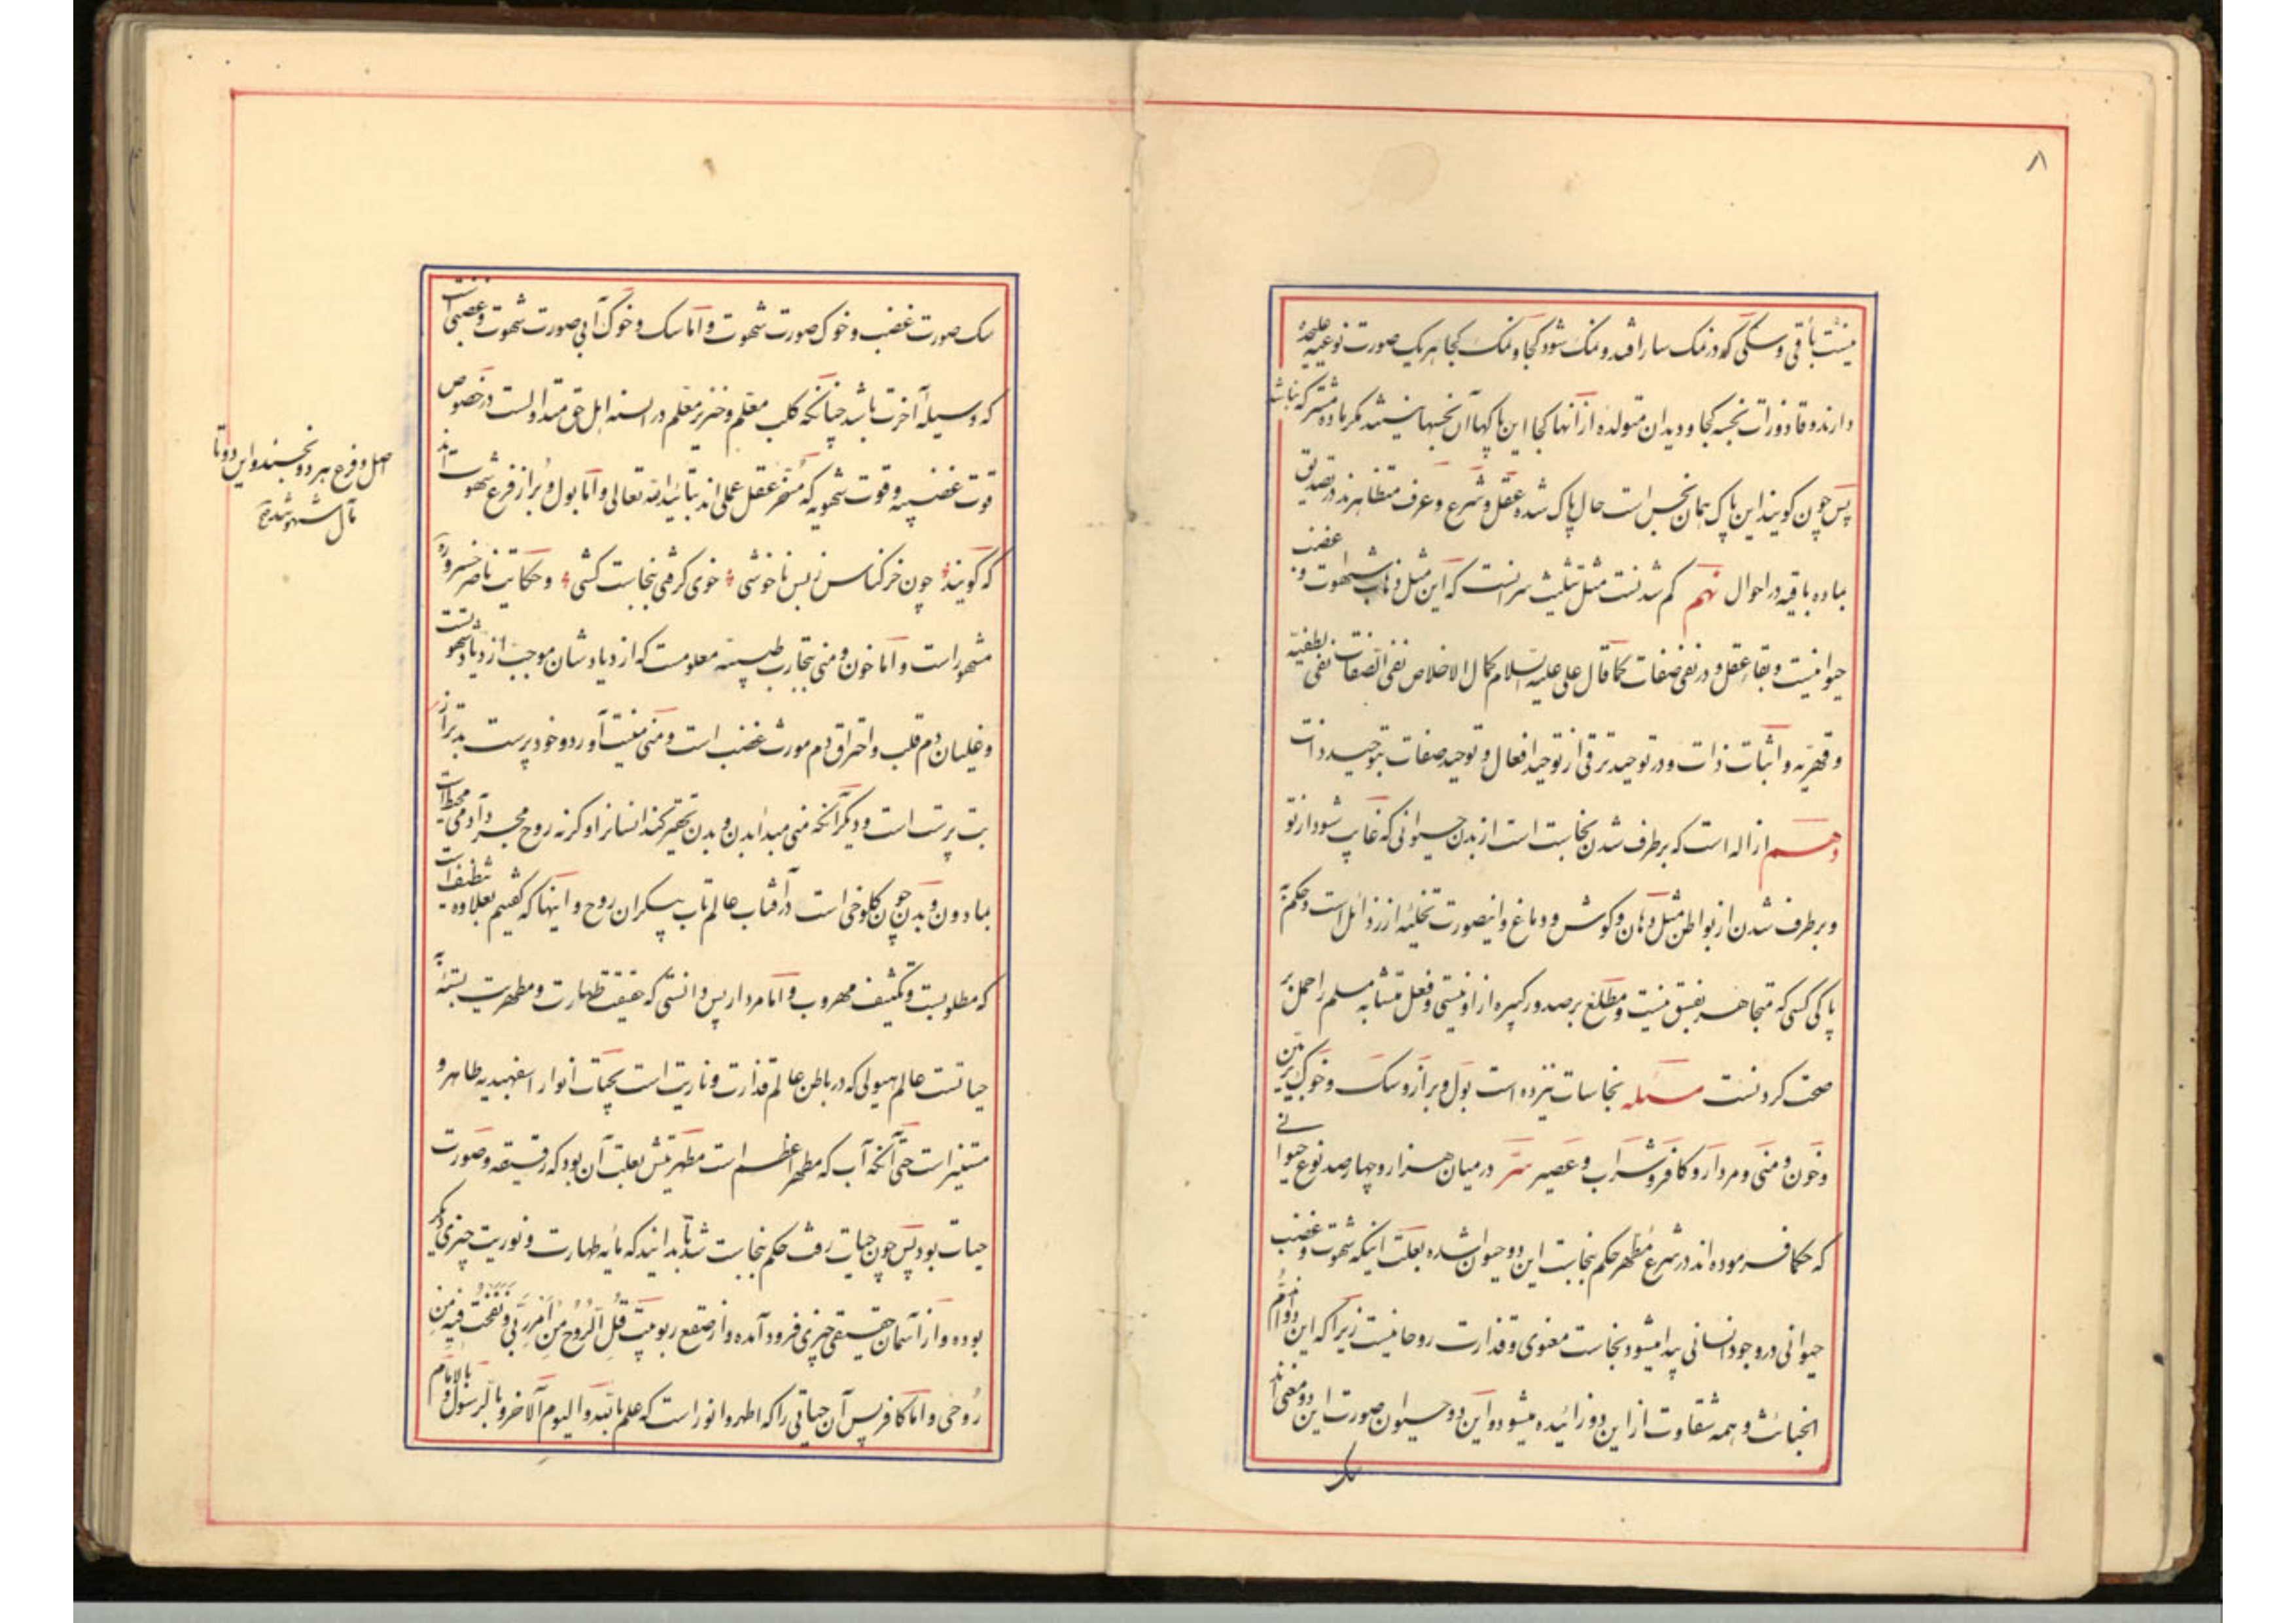 ۸
نیست باقی و سگی که در نمک سار افتد و نمک شود کجا و نمک کجا هر یک صورت نوعیه علیحده
دارند و قاذورات نجسه کجا و دیدان متولده از آنها کجا این پاکها آن نجسها نیستند مگر ماده مشترکه باشد
پس چون گویند این پاک همان نجس است حال پاک شده عقل و شرع و عرف متظاهرند در تصدیق
بماده باقیه در احوال نهم کم شدنست مثل تثلیث سرانست که این مثل ذهاب شهوت و غضب
حیوانیست و بقاء عقل و در نفی صفات کما قال علی علیه السلام کمال الاخلاص نفی الصفات نفی لطفیه
و قهریه و اثبات ذات و در توحید ترقی از توحید افعال و توحید صفات بتوحید ذات
دهم ازاله است که برطرف شدن نجاست است از بدن حیوانی که غایب شود از تو
و برطرف شدن از بواطن مثل دهان و گوش و دماغ و اینصورت تخلیه از رذائل است و حکم به
پاکی کسی که متجاهر بفسق نیست و مطلع بر صدور کبیره از او نیستی و فعل متشابه مسلم را حمل بر
صحت کردنست مسئله نجاسات نیز ده است بول و براز و سگ و خوک برین
و خون و منی و مردار و کافر و شراب و عصیر سرّ در میان هزار و چهارصد نوع حیوانی
که حکما فرموده اند در شرع مطهر حکم بنجاست این دو حیوان شده بعلت اینکه شهوت و غضب
حیوانی در وجود انسانی پیدا میشود نجاست معنوی و قذارت روحانیست زیرا که این دو امّ
الخبائث و همه شقاوت از این دو زائیده میشود و این دو حیوان صورت این دو معنی اند
سک
سک صورت غضب و خوک صورت شهوت و اما سک و خوک آبی صورت شهوت و غضبی است
که وسیله آخرت باشد چنانکه کلب معلم و خنزیر معلم در السنه اهل حق متداولست در خصوص
قوت غضبیه و قوت شهویه که مسخر عقل عملی اند بتائید الله تعالی و اما بول و براز فرع شهوت اند
که گویند چون خر کناس ز بس ناخوشی خوی گرفتی بنجاست کشی و حکایت ناصر خسرو ره
مشهور است و اما خون و منی بتجارب طبیه معلومست که ازدیادشان موجب ازدیاد شهوتست
و غلیان دم قلب و احتراق دم مورث غضب است و منی منیت آورد و خودپرست بدتر از
بت پرست است و دیگر آنکه منی مبدأ بدن و بدن تحقیر کند انسانرا و گرنه روح مجرد آدمی محیط است
بمادون و بدن چون کلوخی است در آفتاب عالم تاب بیکران روح و اینها که گفتیم بعلاوه تنظیف است
که مطلوبست و تکثیف مهروب و اما مردار پس دانستی که حقیقت طهارت و مطهریت بسته به
حیاتست عالم هیولی که در باطن عالم قذارت و ناریت است بحیات انوار اسفهبدیه طاهر و
مستنیر است حتی آنکه آب که مطهر اعظم است مطهریتش بعلت آن بود که رقیقه و صورت
حیات بود پس چون حیات رفت حکم بنجاست شد تا بدانید که مایه طهارت و نوریت چیزی دیگر
بوده و از آسمان حقیقی چیزی فرود آمده و از صقع ربوبیت قُلِ الرُّوحُ مِن اَمرِ رَبّی وَ نَفَختُ فیهِ مِن
رُوحی و اما کافر پس آن حیاتی را که اطهر و انور است که علم بالله و الیوم الآخر و بالرسول و بالامام
اصل و فرع هر دو نجسند و این دو تا